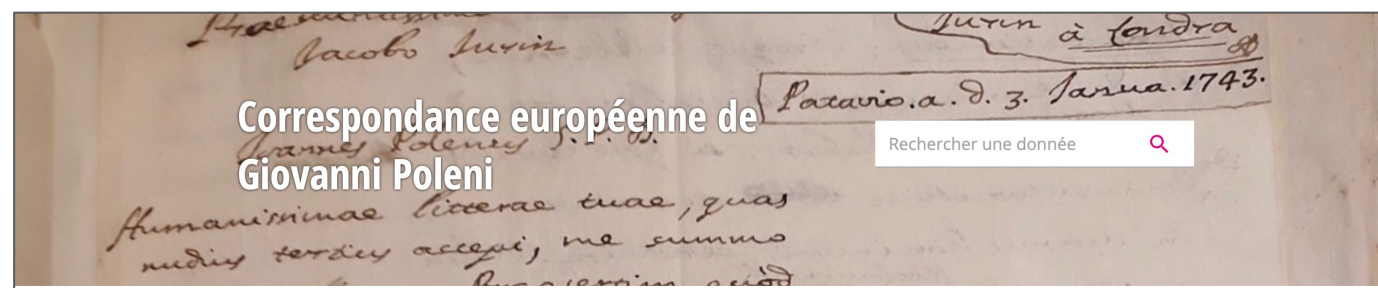 Jacobo Jurin
Jurin
à Londra
Patavio. a. d. 3. Janua. 1743.
Correspondance européenne de
Giovanni Poleni
Rechercher une donnée
Joannes Polenus S. P. D.
Humanissimae litterae tuae, quas
nudius tertius accepi, me summo